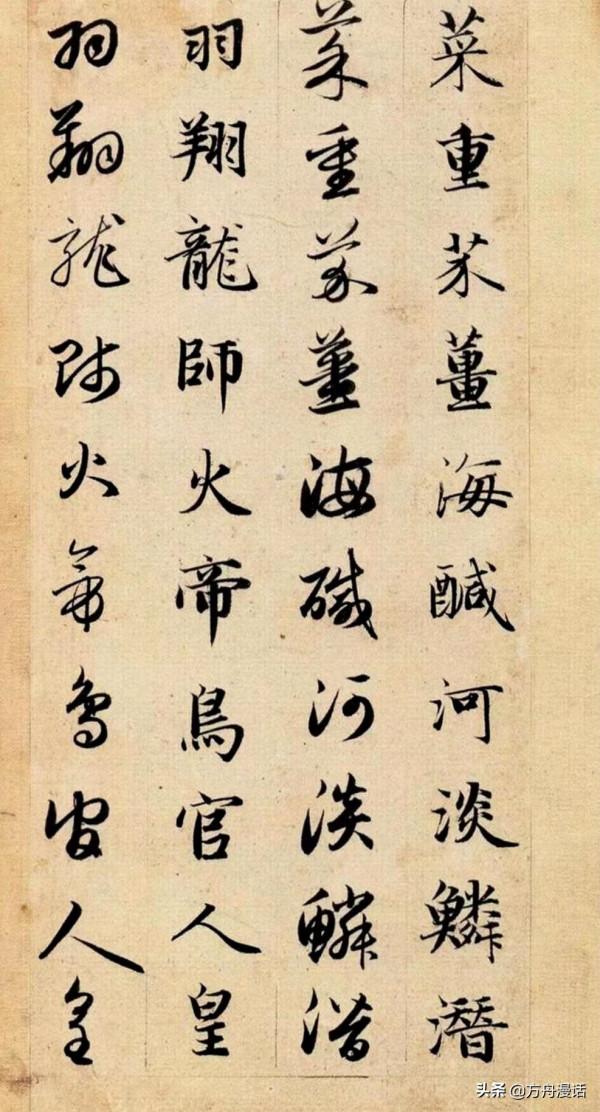 菜重芥薑海醎河淡鱗潛
菜重芥薑海醎河淡鱗潛
羽翔龍師火帝鳥官人皇
羽翔龍師火帝鳥官人皇
头条 @方舟漫话